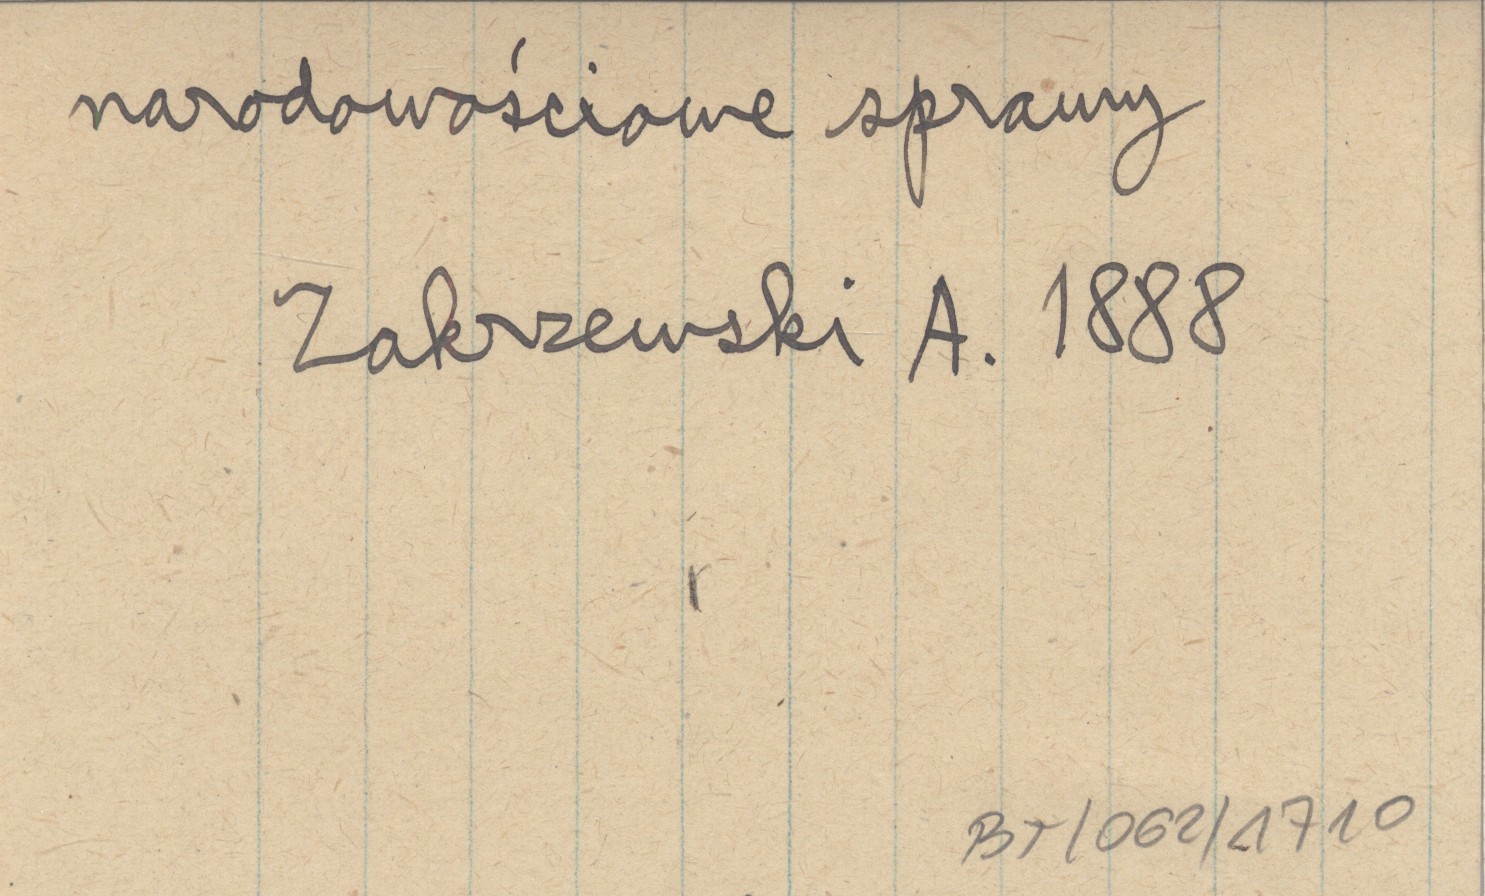 narodowościowe sprawy
Zakrzewski A. 1888
BT/062/1710